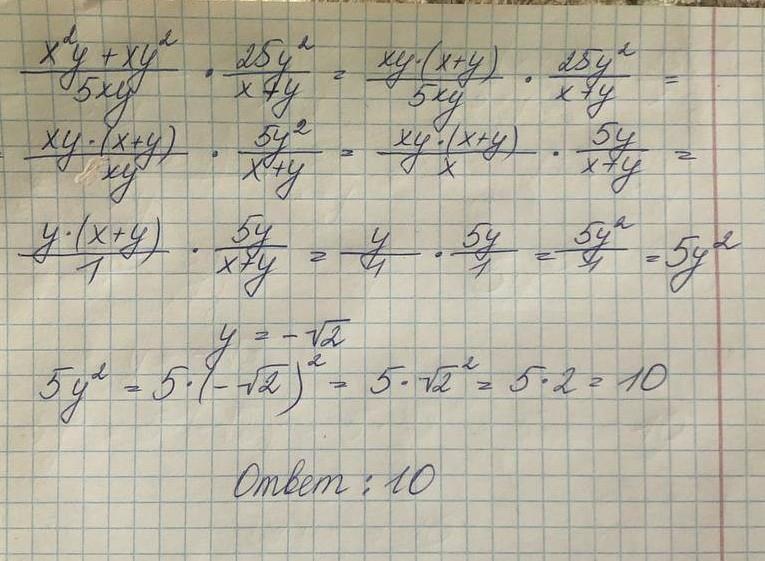 (x²y + xy²)/(5xy) · (25y²)/(x+y) = (xy·(x+y))/(5xy) · (25y²)/(x+y) =
(xy·(x+y))/(xy) · (5y²)/(x+y) = (xy·(x+y))/x · (5y)/(x+y) =
(y·(x+y))/1 · (5y)/(x+y) = y/1 · 5y/1 = 5y²/1 = 5y²
y = -√2
5y² = 5·(-√2)² = 5·√2² = 5·2 = 10
Ответ: 10